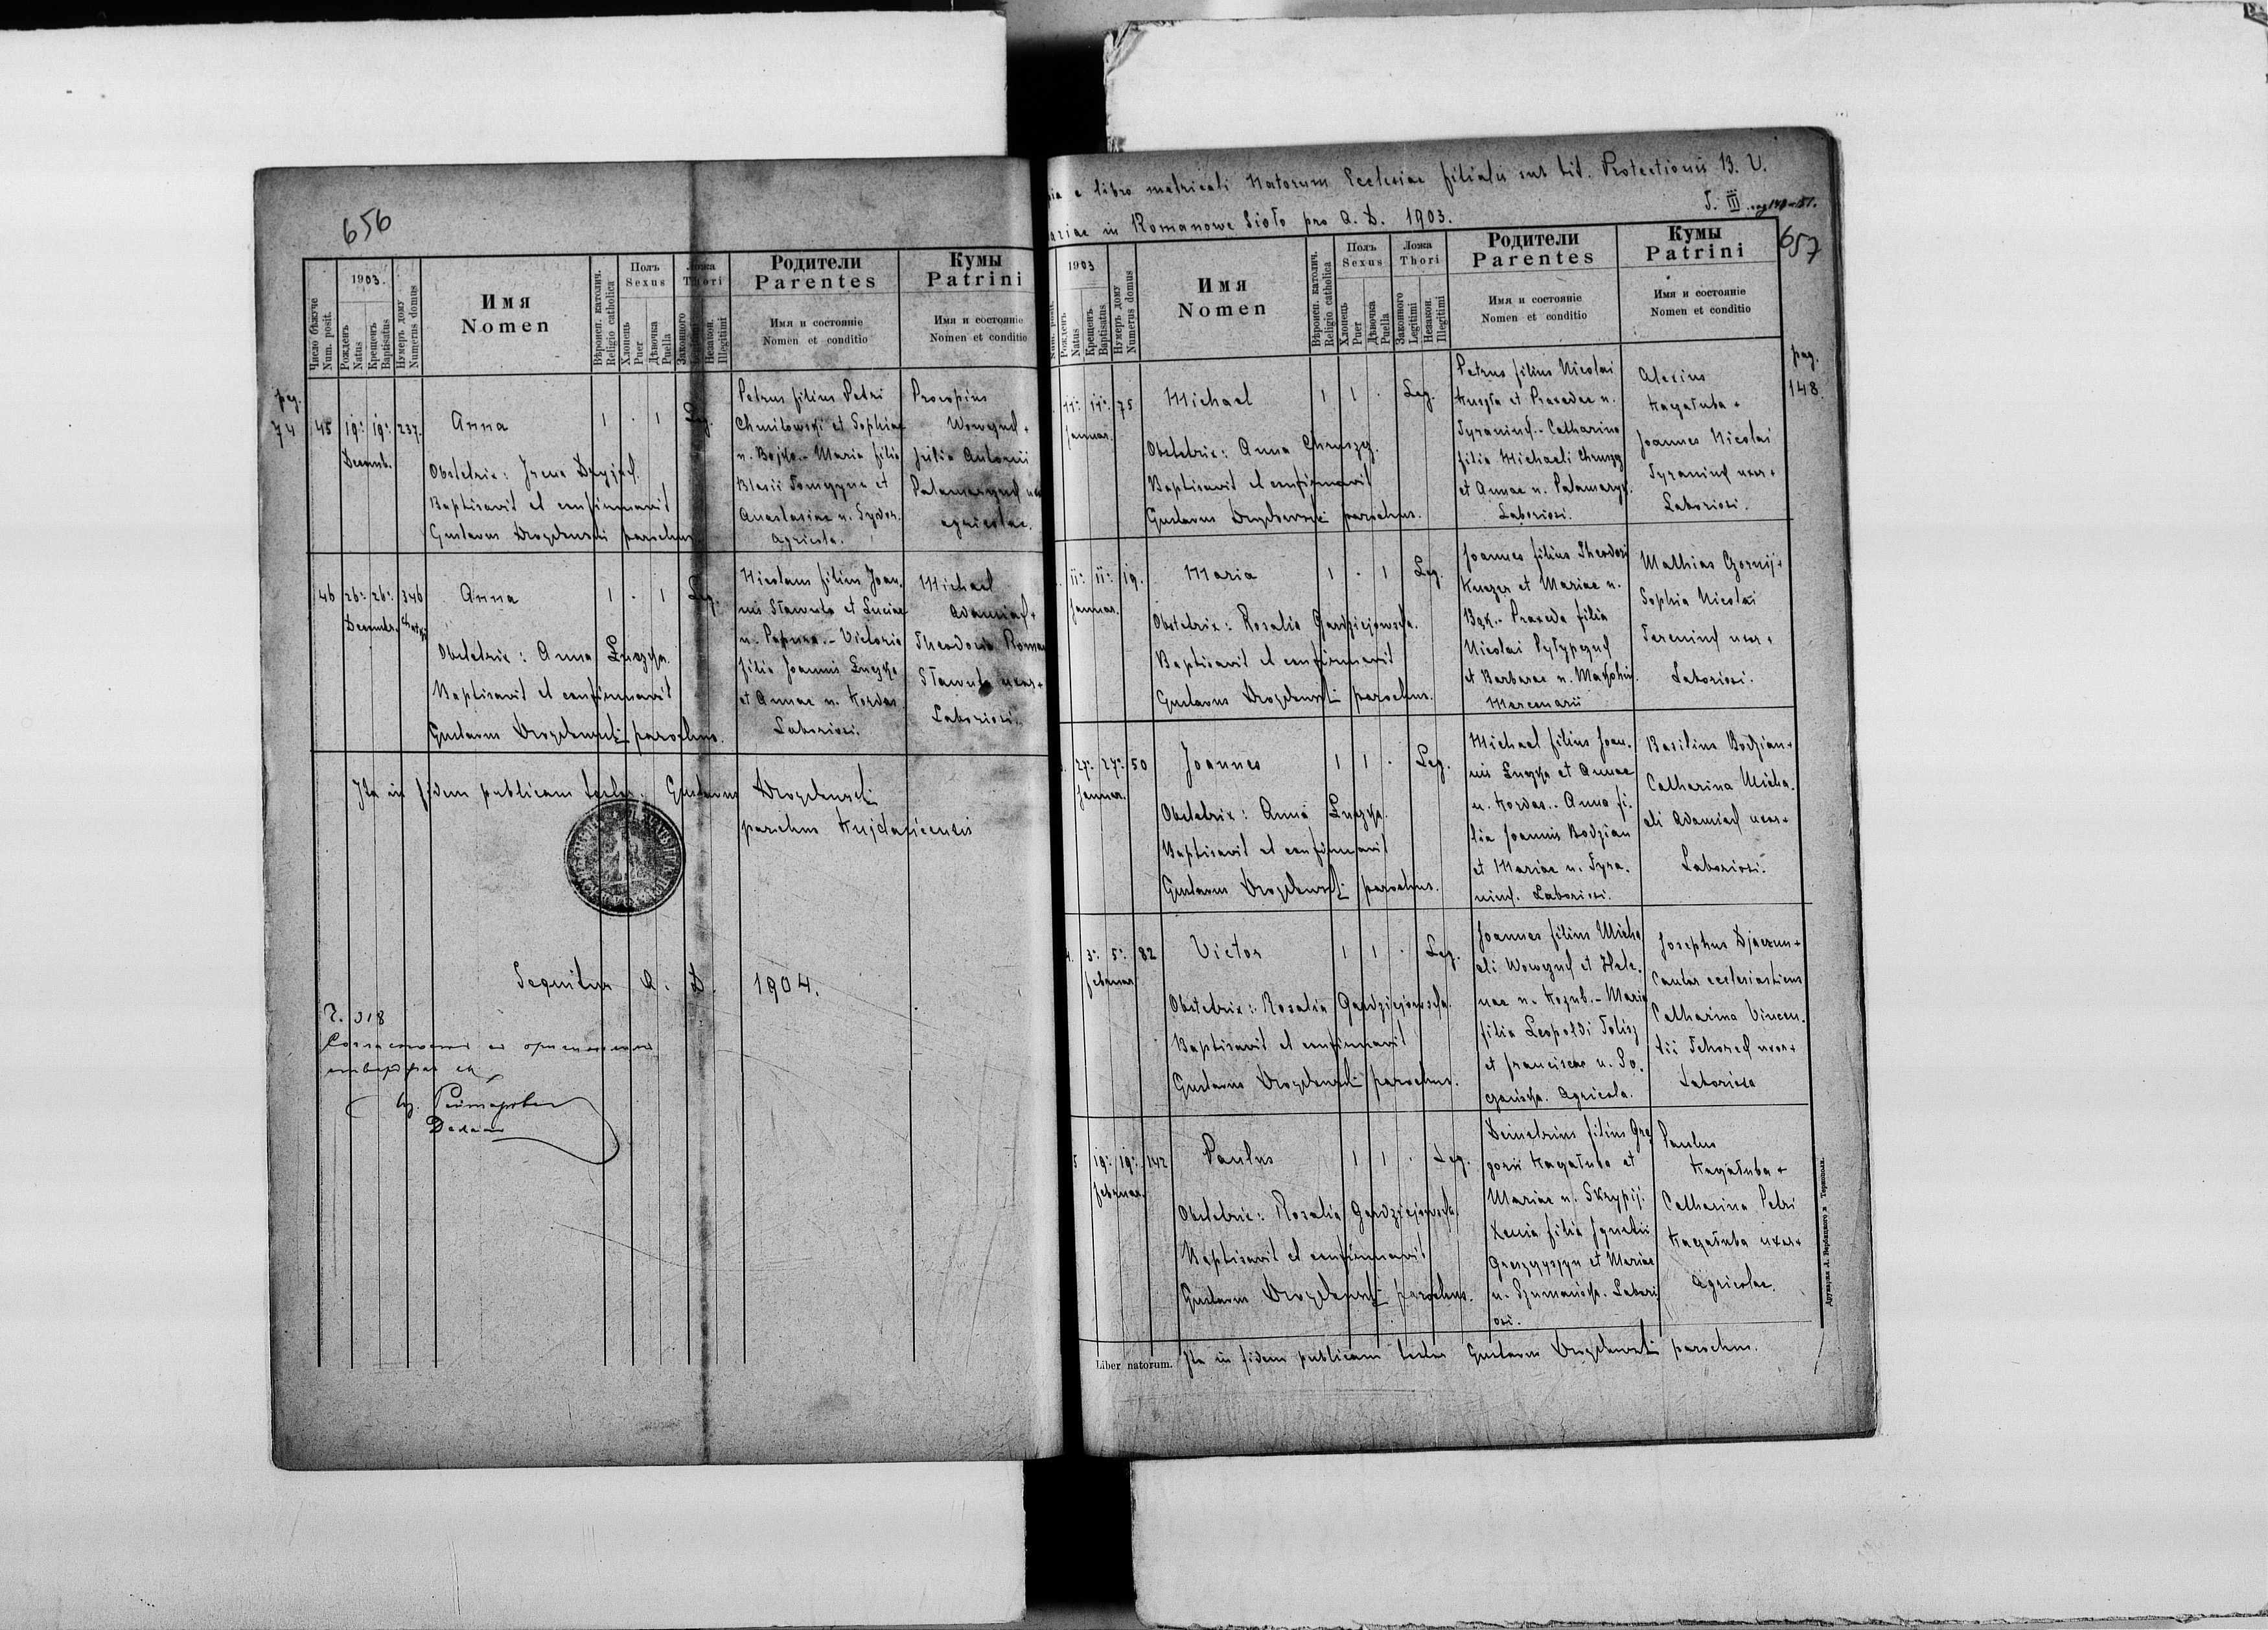 656
Число бѣжуче
Num. posit.
1903.
Рожденъ
Natus
Крещенъ
Baptisatus
Нумеръ дому
Numerus domus
Имя
Nomen
Вѣроисп. католич.
Religio catholica
Полъ
Sexus
Хлопець
Puer
Дѣвочка
Puella
Ложа
Thori
Законного
Legitimi
Незакон.
Illegitimi
Родители
Parentes
Имя и состояніе
Nomen et conditio
Кумы
Patrini
Имя и состояніе
Nomen et conditio
pag.
74
45 19. 19. 237.
Decemb.
Anna
1 . 1 Leg.
Obstetrix: Irena
Baptisavit et confirmavit
Gustavus Drozdowski parochus
Petrus filius Petri
Chmilowski et Sophiae
n. Bojko.- Maria filia
Blasii et
Anastasiae n.
Agricola.
Procopius
+
Julia Antonii
agricolae.
46 26. 26. 346
Decembr.
Anna
1 . 1 Leg.
Obstetrix: Anna Łuczka.
Baptisavit et confirmavit
Gustavus Drozdowski parochus.
Nicolaus filius Joan-
nis et Luciae
n. - Victoria
filia Joannis Łuczka
et Annae n. Kordas
Laboriosi.
Michael
Adamiach +
Theodosia
uxor +
Laboriosi.
Ita in fidem publicam testor. Gustavus Drozdowski
parochus Kujdanicensis
Sequitur A. D. 1904.
Ч. 318
Декан
e libro metricali Natorum Ecclesiae filialis sub tit. Protectionis B. V.
Mariae in Romanowe Sioło pro A. D. 1903.
T. III pag 148-151.
657
1903
Рожденъ
Natus
Крещенъ
Baptisatus
Нумеръ дому
Numerus domus
Имя
Nomen
Вѣроисп. католич.
Religio catholica
Полъ
Sexus
Хлопець
Puer
Дѣвочка
Puella
Ложа
Thori
Законного
Legitimi
Незакон.
Illegitimi
Родители
Parentes
Имя и состояніе
Nomen et conditio
Кумы
Patrini
Имя и состояніе
Nomen et conditio
pag.
148
11. 11. 75
Januar.
Michael
1 1 . Leg.
Obstetrix: Anna Chruszcz.
Baptisavit et confirmavit
Gustavus Drozdowski parochus.
Petrus filius Nicolai
et Praxedae n.
Tyraninch.- Catharina
filia Michaeli Chruszcz
et Annae n. Palamaryk.
Laboriosi.
Alexius
Kaczałuba +
Joannes Nicolai
Tyraninch uxor +
Laboriosi.
11. 11. 19.
Januar.
Maria
1 . 1 Leg.
Obstetrix: Rosalia Gardziejowska.
Baptisavit et confirmavit
Gustavus Drozdowski parochus.
Joannes filius Theodori
et Mariae n.
Bąk.- Praxeda filia
Nicolai
et Barbarae n.
Mercenarii
Mathias Czornij +
Sophia Nicolai
uxor +
Laboriosi.
27. 27. 50
Januar.
Joannes
1 1 . Leg.
Obstetrix: Anna Łuczka.
Baptisavit et confirmavit
Gustavus Drozdowski parochus.
Michael filius Joan-
nis Łuczka et Annae
n. Kordas.. Anna fi-
lia Joannis Bodzian
et Mariae n. Tyra-
ninch. Laboriosi.
Basilius Bodzian +
Catharina Micha-
eli Adamiach uxor +
Laboriosi.
4. 3. 5. 82
Februar.
Victor
1 1 . Leg.
Obstetrix: Rosalia Gardziejowska.
Baptisavit et confirmavit
Gustavus Drozdowski parochus.
Joannes filius Micha
eli et Hele-
nae n. Kozub.- Maria
filia Leopoldi
et Franciscae n.
Agricola.
Josephus Djaczun +
Cantor ecclesiasticus
Catharina Vincen-
tii uxor +
Laboriosa
5 19. 19. 142
Februar.
Paulus
1 1 . Leg.
Obstetrix: Rosalia Gardziejowska.
Baptisavit et confirmavit
Gustavus Drozdowski parochus.
Demetrius filius Gre
gorii Kaczałuba et
Mariae n. Skrypij.
Xenia filia Ignatii
et Mariae
n. Szumańska. Labori
osi.
Paulus
Kaczałuba +
Catharina Petri
Kaczałuba uxor +
Agricolae.
Liber natorum.
Ita in fidem publicam testor Gustavus Drozdowski parochus.
Друкарня Л. Вербицкого в Тернополи.